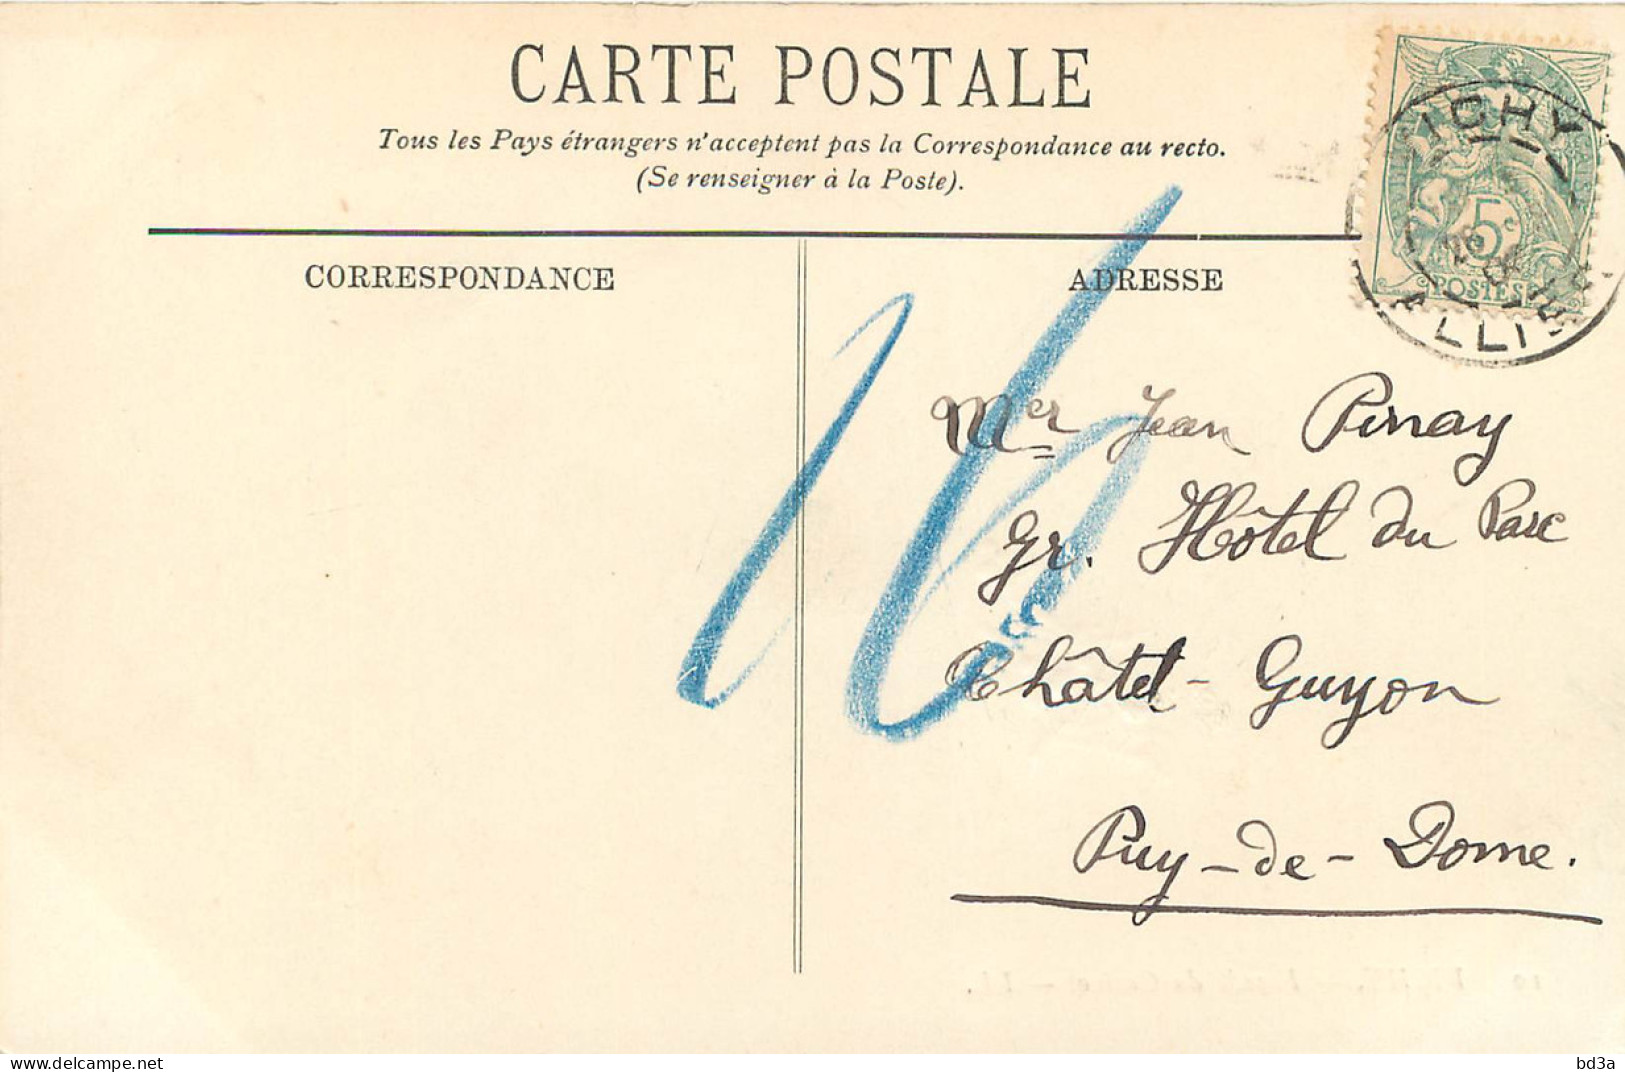 CARTE POSTALE
Tous les Pays étrangers n'acceptent pas la Correspondance au recto.
(Se renseigner à la Poste).
CORRESPONDANCE
ADRESSE
VICHY
26
ALLIER
5c
POSTES
16
Mer Jean Pinay
Gr. Hôtel du Parc
Châtel-Guyon
Puy-de-Dome.
bd3a